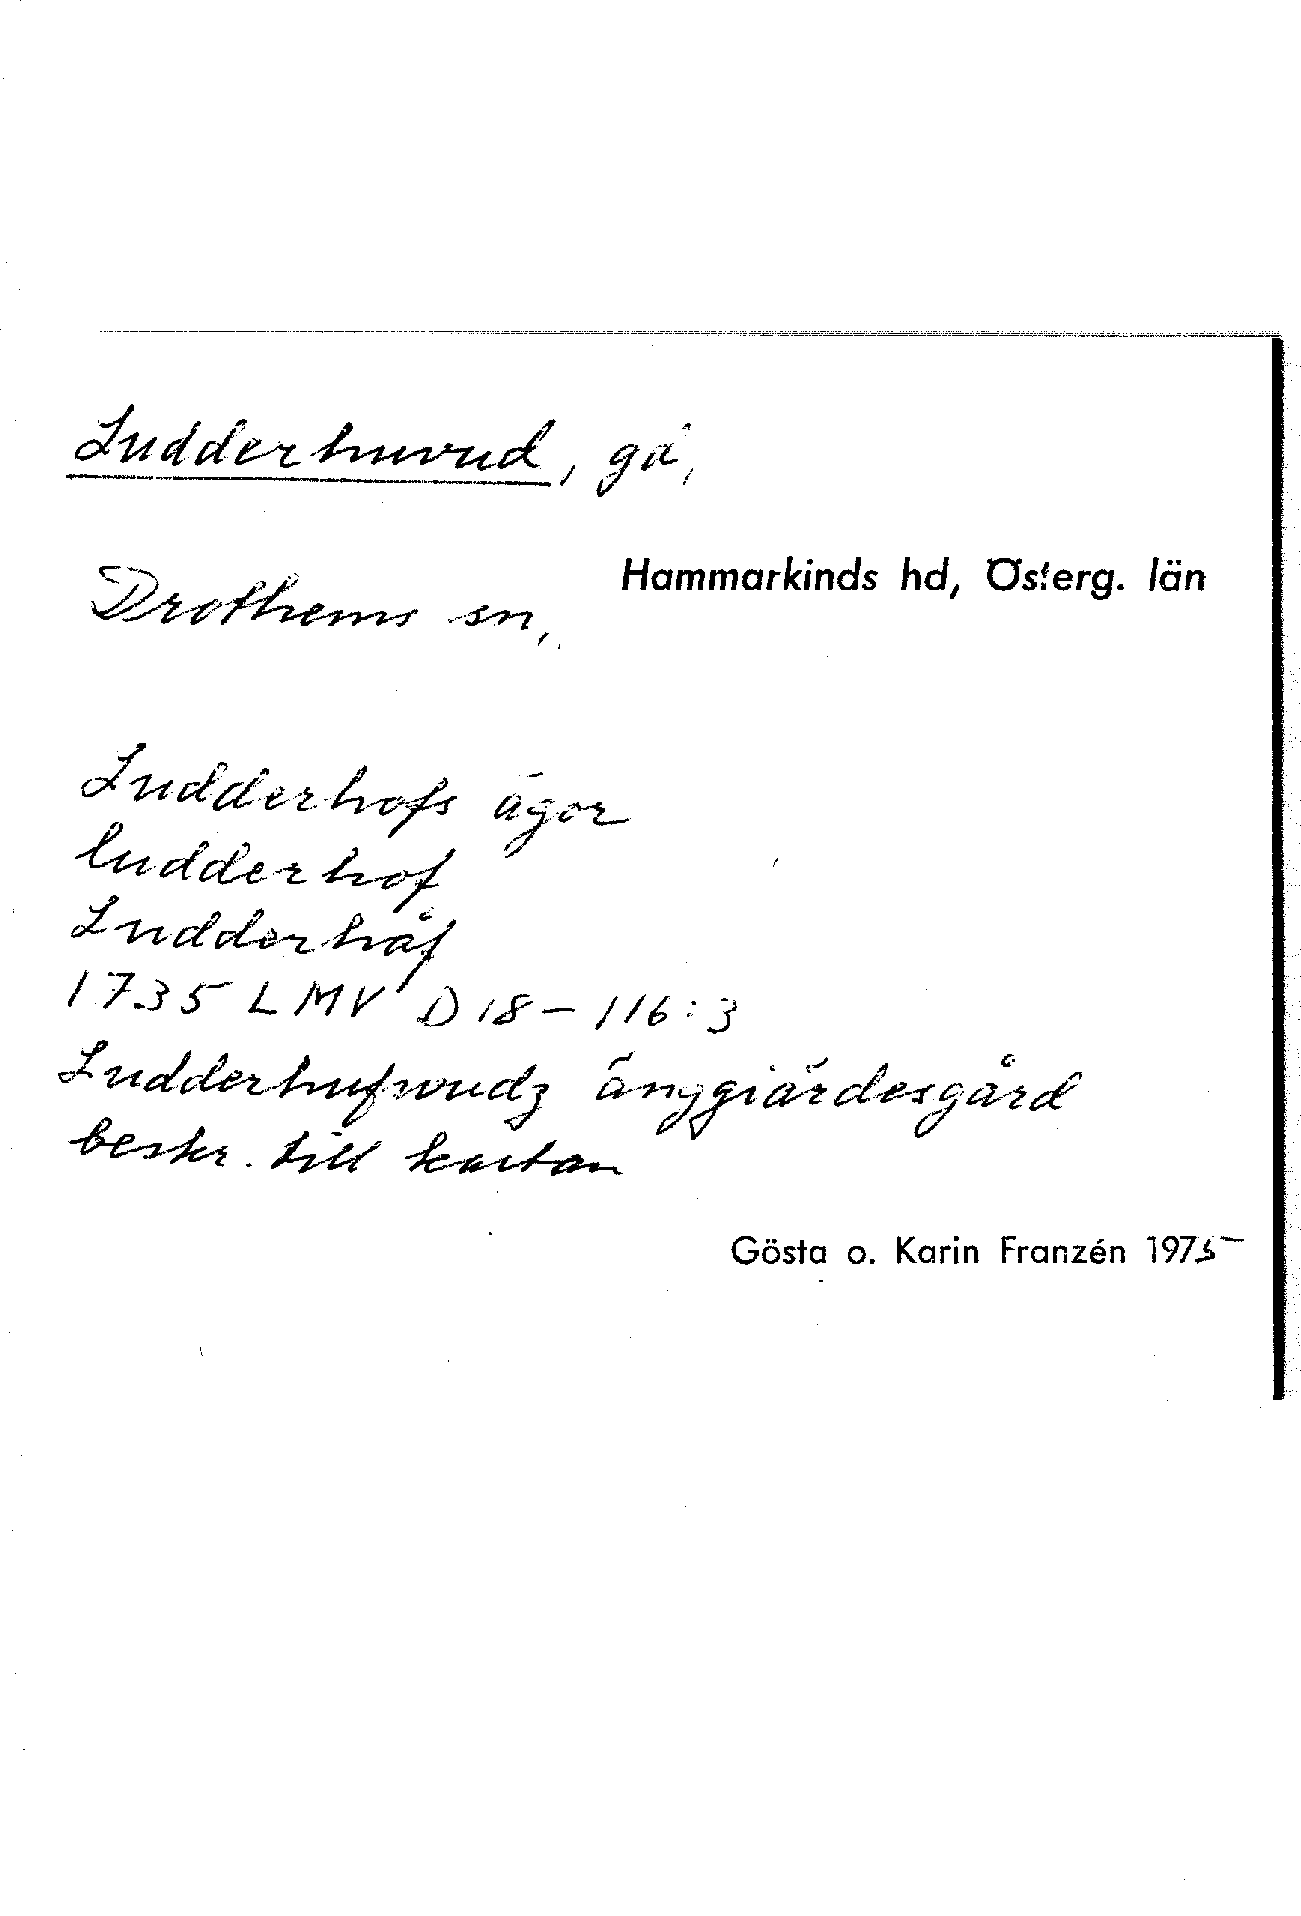 Ludderhuvud, gå,
Hammarkinds hd, Österg. län
Drothems sn,
Ludderhofs ägor
ludderhof
Ludderhåf
1735 LMV D18-116:3
Ludderhufwudz änggiärdesgård
beskr. till kartan
Gösta o. Karin Franzén 1975